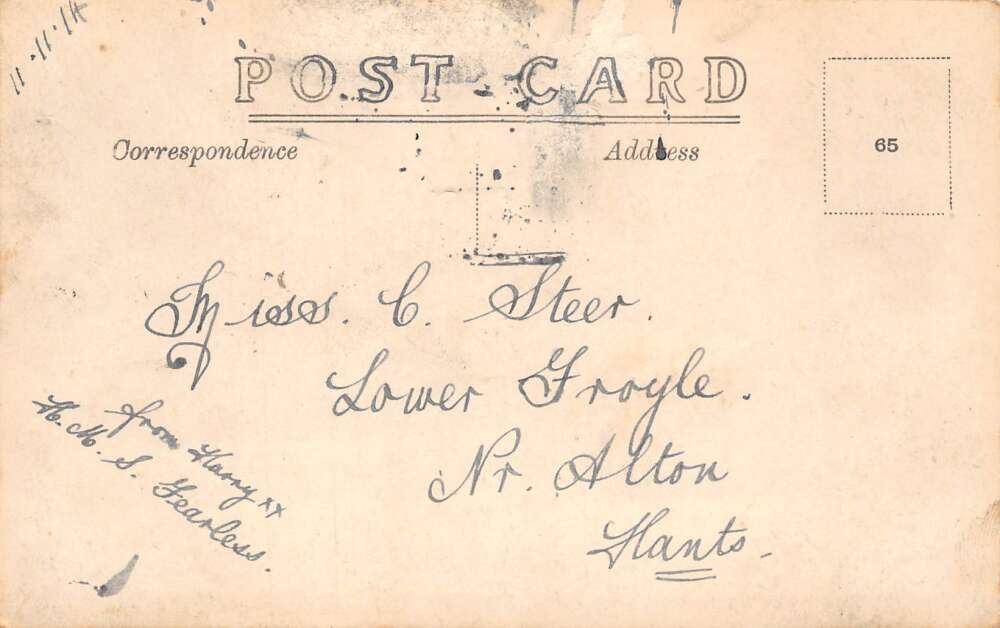 11.11.14
POST CARD
Correspondence
Address
65
Miss. C. Steer.
Lower Froyle.
Nr. Alton
Hants.
from Harry xx
H.M.S. Fearless.